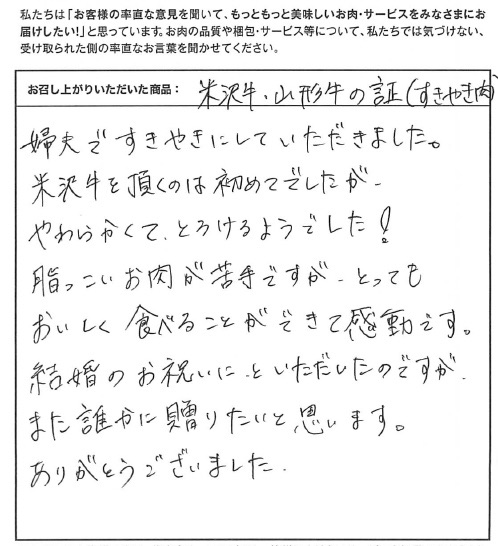 私たちは「お客様の率直な意見を聞いて、もっともっと美味しいお肉・サービスをみなさまにお
届けしたい！」と思っています。お肉の品質や梱包・サービス等について、私たちでは気づけない、
受け取られた側の率直なお言葉を聞かせてください。
お召し上がりいただいた商品： 米沢牛・山形牛の証(すきやき肉)
婦夫ですきやきにしていただきました。
米沢牛を頂くのは初めてでしたが、
やわらかくて、とろけるようでした！
脂っこいお肉が苦手ですが、とっても
おいしく食べることができて感動です。
結婚のお祝いに、といただいたのですが、
また誰かに贈りたいと思います。
ありがとうございました.